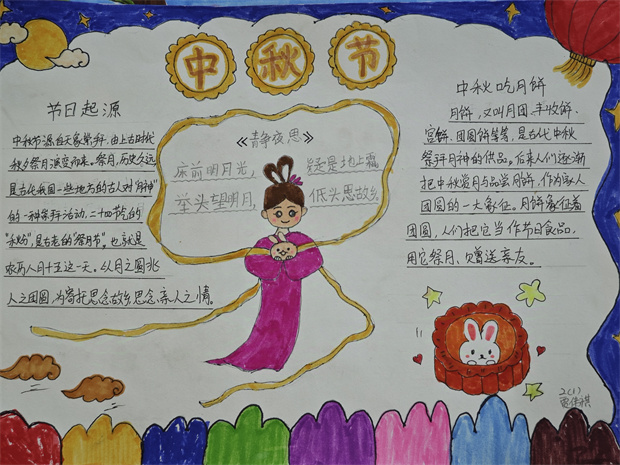 中秋节
节日起源
中秋节源自天象崇拜，由上古时代
秋夕祭月演变而来。祭月，历史久远，
是古代我国一些地方的古人对"月神"
的一种崇拜活动，二十四节气的
"秋分"，是古老的"祭月节"。也就是
农历八月十五这一天。以月之圆兆
人之团圆，为寄托思念故乡，思念亲人之情。
《静夜思》
床前明月光，疑是地上霜
举头望明月，低头思故乡。
中秋吃月饼
月饼，又叫月团、丰收饼、
宫饼、团圆饼等等，是古代中秋
祭拜月神的供品。后来人们逐渐
把中秋赏月与品尝月饼，作为家人
团圆的一大象征。月饼象征着
团圆，人们把它当作节日食品，
用它祭月、赠送亲友。
2(1)